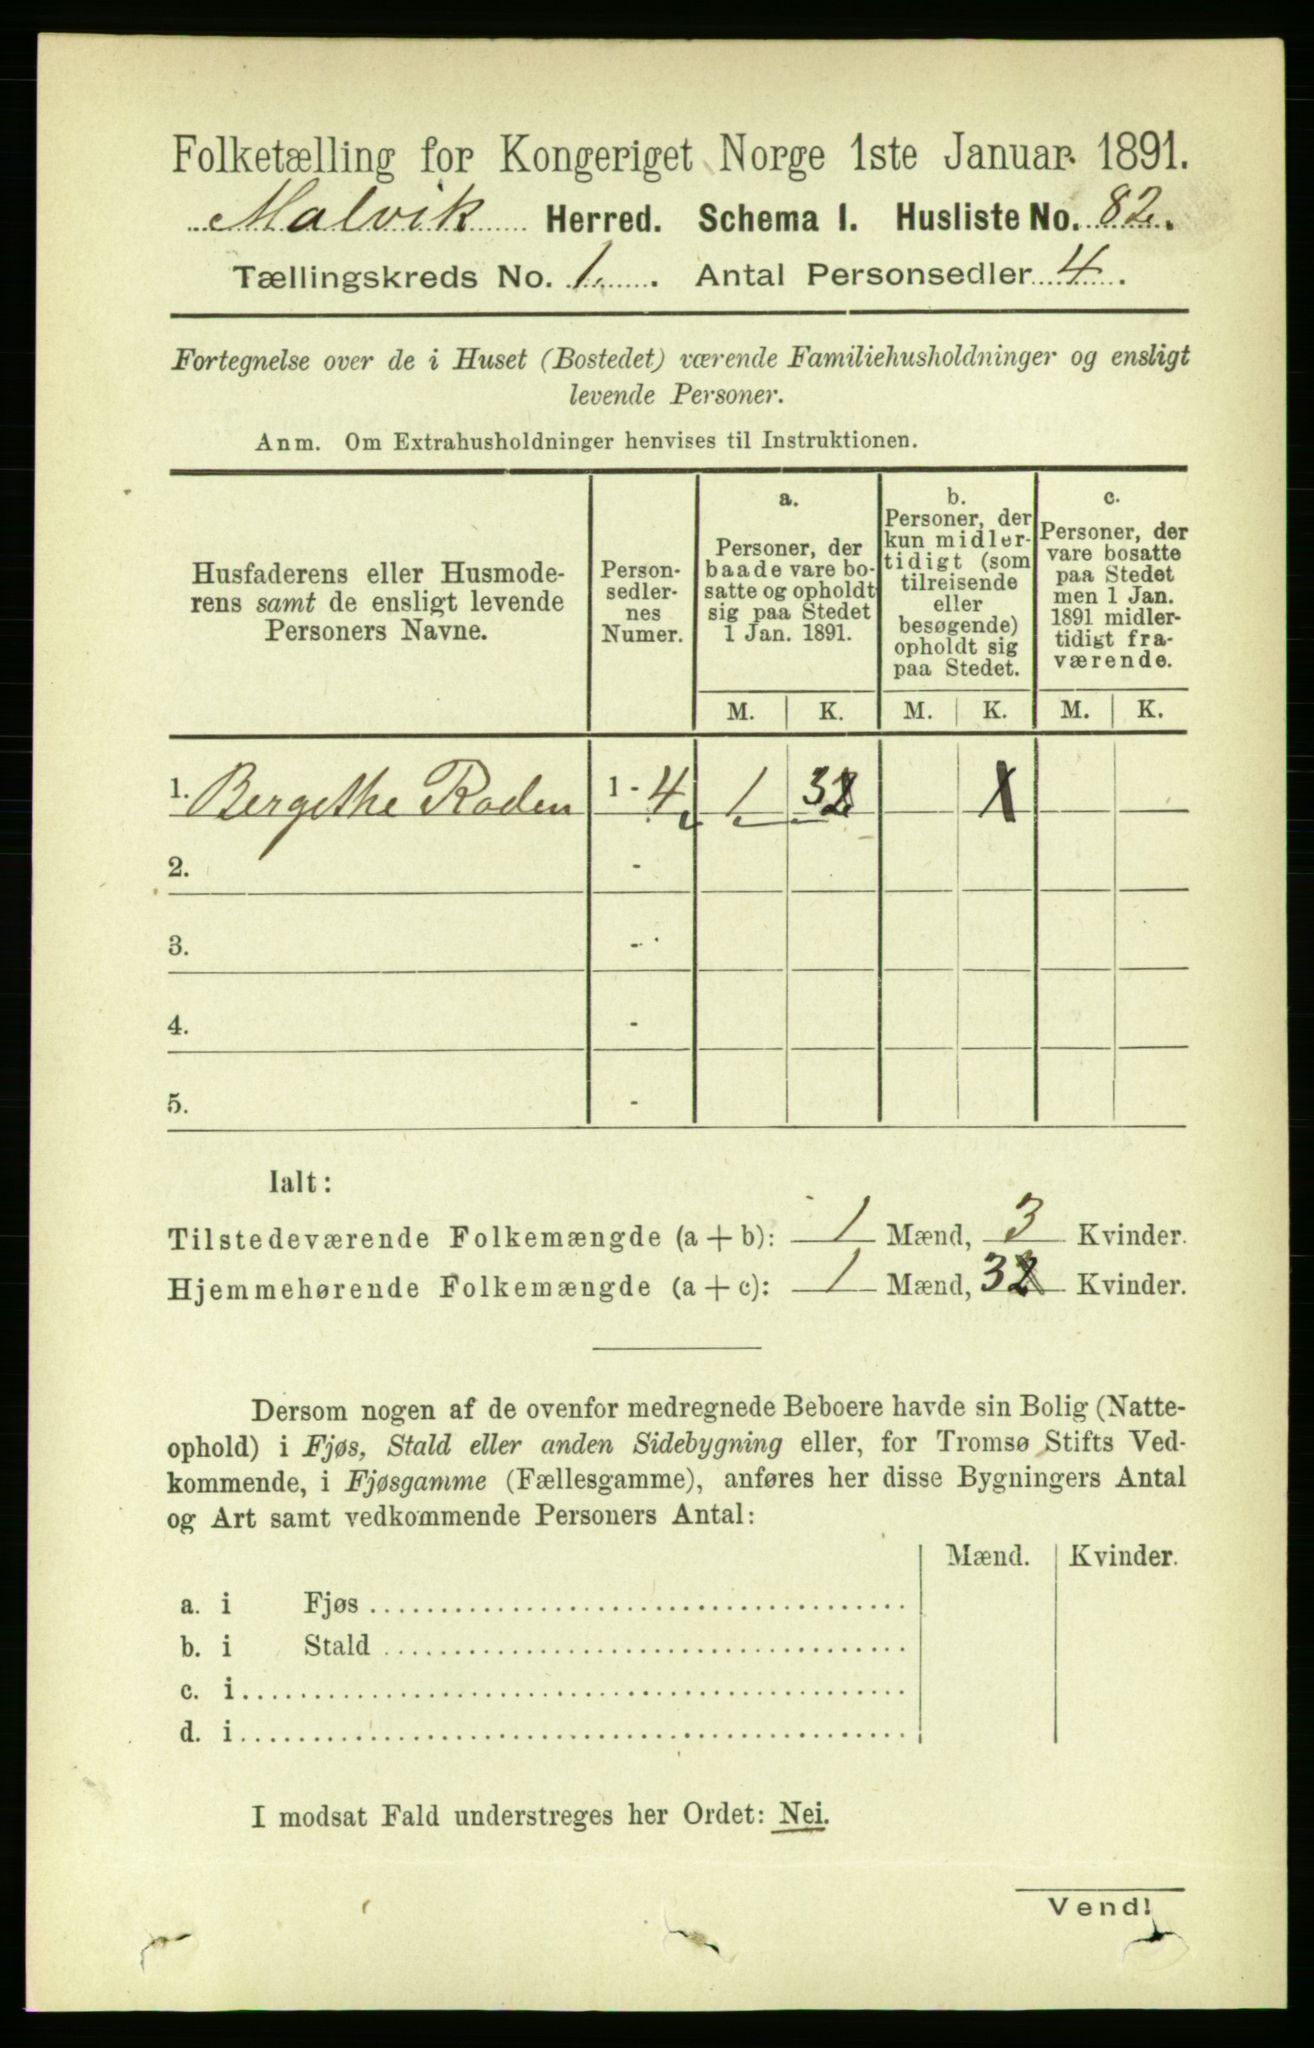 Folketælling for Kongeriget Norge 1ste Januar 1891.
Malvik Herred. Schema I. Husliste No. 82.
Tællingskreds No. 1. Antal Personsedler 4.
Fortegnelse over de i Huset (Bostedet) værende Familiehusholdninger og ensligt
levende Personer.
Anm. Om Extrahusholdninger henvises til Instruktionen.
Husfaderens eller Husmode-
rens samt de ensligt levende
Personers Navne.
Person-
sedler-
nes
Numer.
a.
Personer, der
baade vare bo-
satte og opholdt
sig paa Stedet
1 Jan. 1891.
b.
Personer, der
kun midler-
tidigt (som
tilreisende
eller
besøgende)
opholdt sig
paa Stedet.
c.
Personer, der
vare bosatte
paa Stedet
men 1 Jan.
1891 midler-
tidigt fra-
værende.
M. K. M. K. M. K.
1. Bergethe Roden 1 - 4 1 3
2. -
3. -
4. -
5. -
Ialt:
Tilstedeværende Folkemængde (a + b): 1 Mænd, 3 Kvinder.
Hjemmehørende Folkemængde (a + c): 1 Mænd, 3 Kvinder.
Dersom nogen af de ovenfor medregnede Beboere havde sin Bolig (Natte-
ophold) i Fjøs, Stald eller anden Sidebygning eller, for Tromsø Stifts Ved-
kommende, i Fjøsgamme (Fællesgamme), anføres her disse Bygningers Antal
og Art samt vedkommende Personers Antal:
Mænd. Kvinder.
a. i Fjøs
b. i Stald
c. i
d. i
I modsat Fald understreges her Ordet: Nei.
Vend!